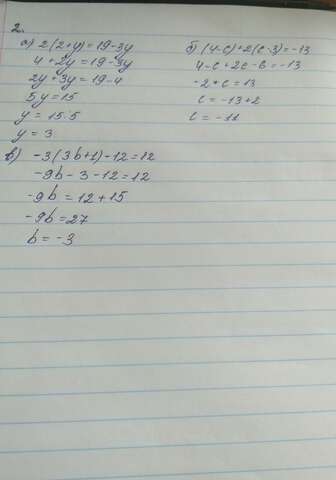 2.
а) 2(2+y)=19-3y
4+2y=19-3y
2y+3y=19-4
5y=15
y=15:5
y=3
б) (4-c)+2(c-3)=-13
4-c+2c-6=-13
-2+c=13
c=-13+2
c=-11
в) -3(3b+1)-12=12
-9b-3-12=12
-9b=12+15
-9b=27
b=-3